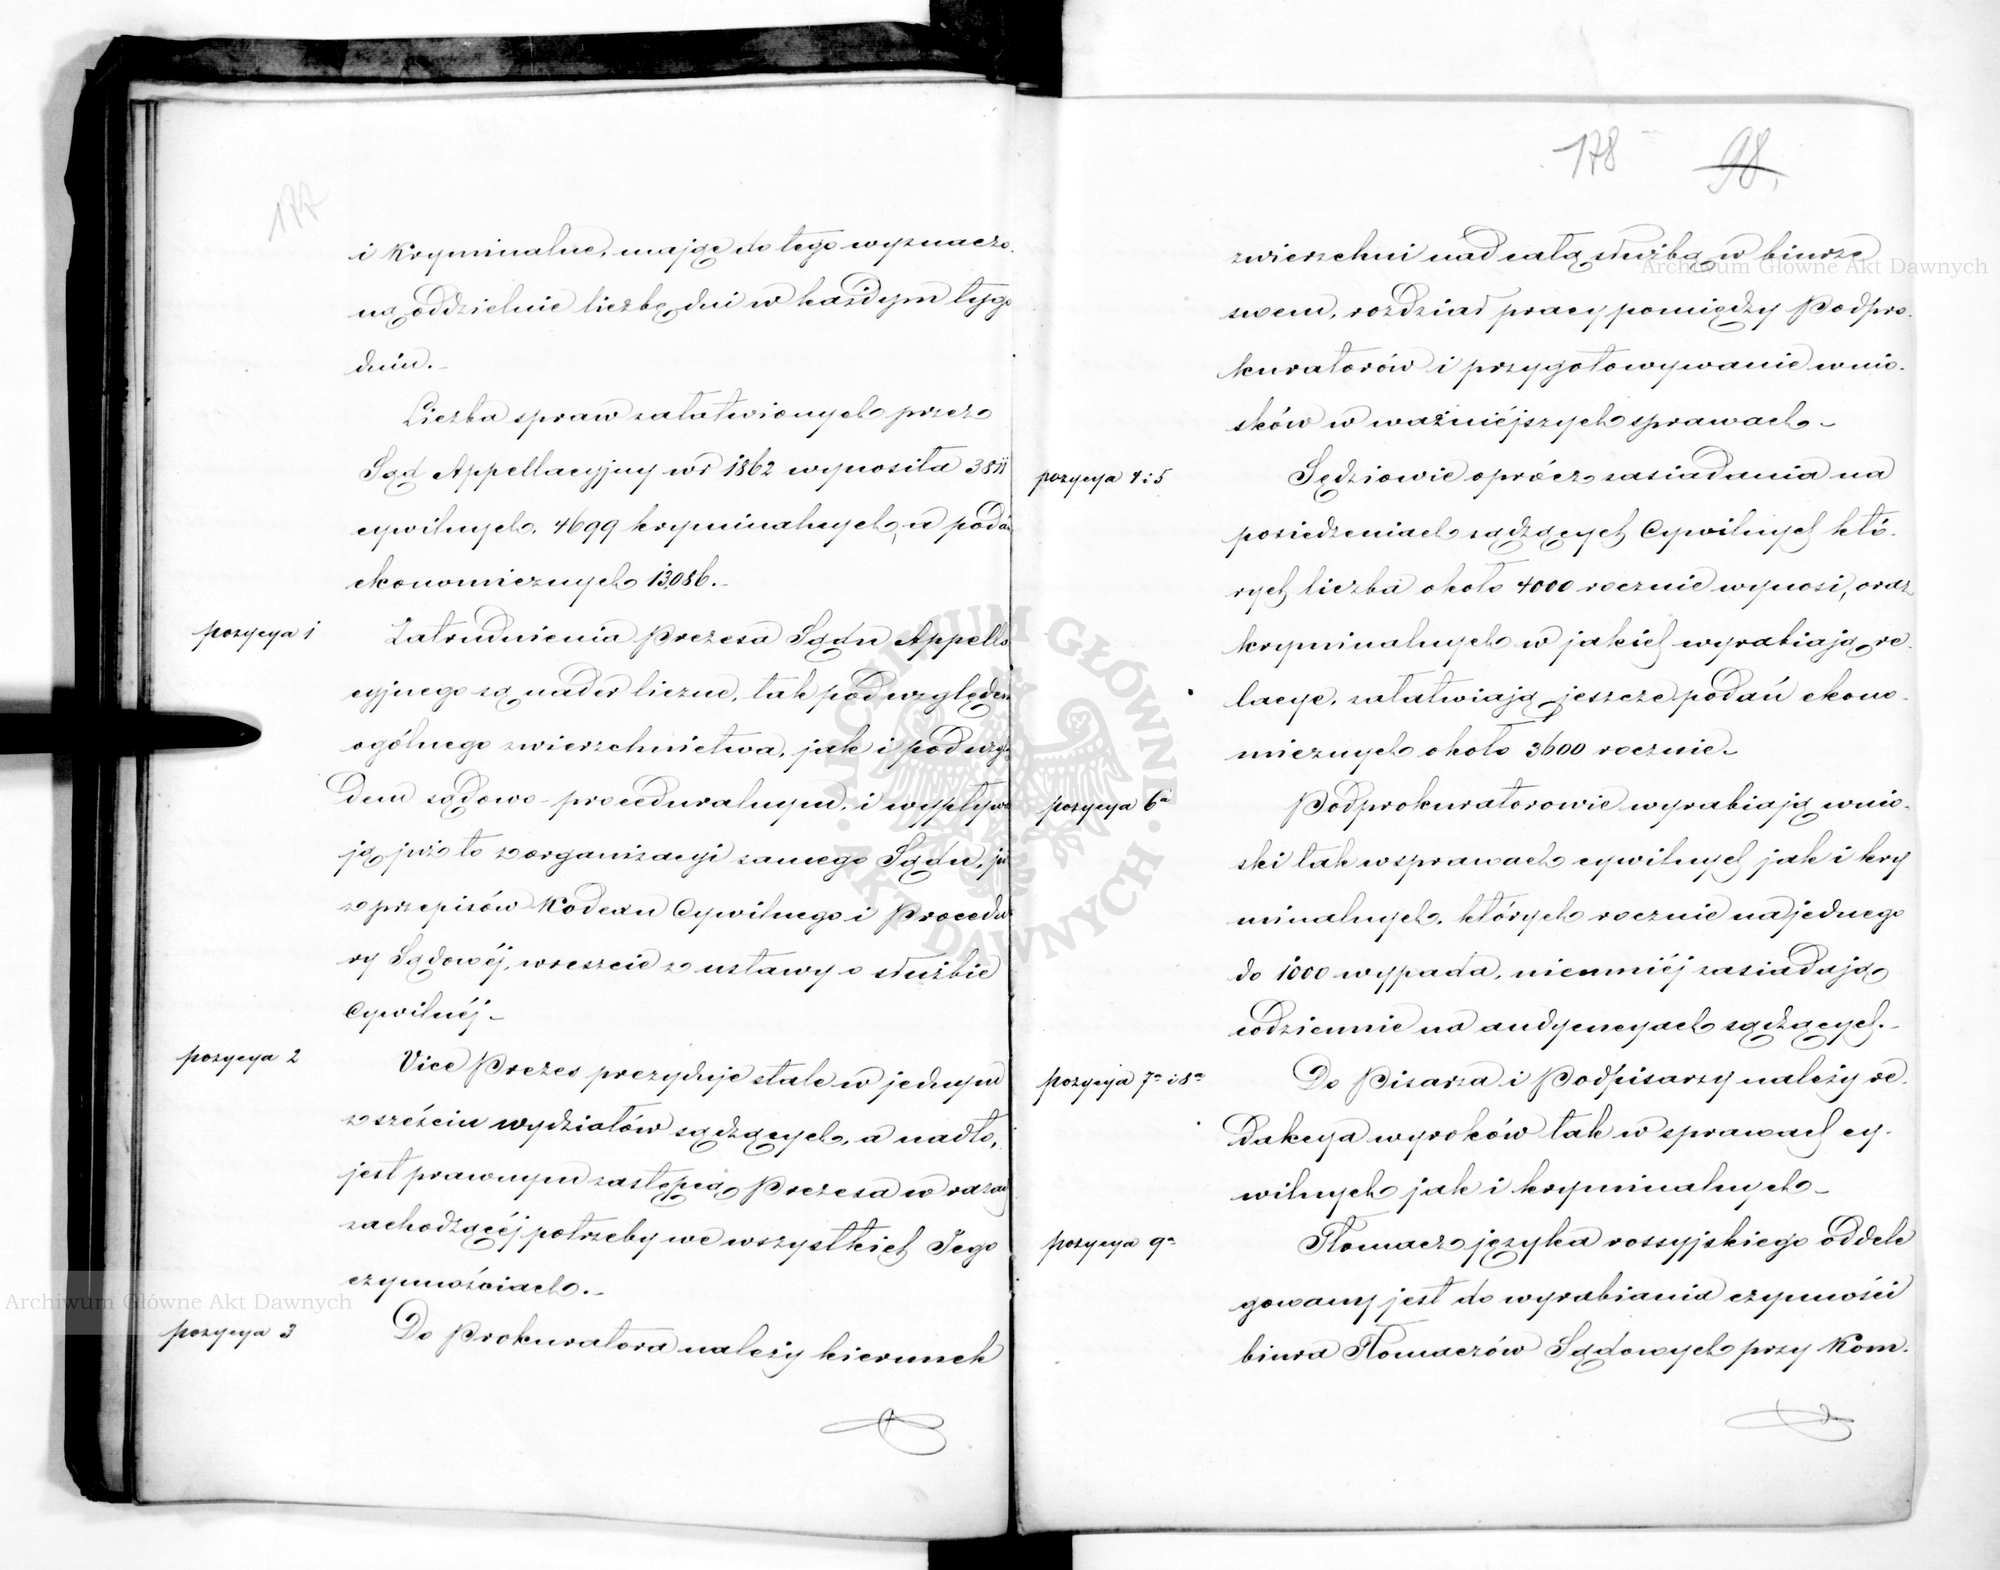 177
i Kryminalne, mają do tego wyznaczo.
ną oddzielnie liczbę dni w każdym tygo
dniu.
Liczba spraw załatwionych przez
Sąd Appellacyjny w r 1862 wynosiła
cywilnych, 4699 kryminalnych, a podań
ekonomicznych 13,086.
pozycya 1
Zatrudnienia Prezesa Sądu Appella
cyjnego są nader liczne, tak pod względem
ogólnego zwierzchnictwa, jak i pod wzglę
dem sądowo-proceduralnym, i wypływa
ją już to z organizacyi samego Sądu, już
z przepisów Kodexu Cywilnego i Procedu
ry Sądowéj, wreszcie z ustawy o służbie
Cywilnéj
pozycya 2
Vice Prezes prezyduje stale w jednym
z sześciu wydziałów sądzących, a nadto,
jest prawnym zastępcą Prezesa w razie
zachodzącéj potrzeby we wszystkich Jego
czynnościach.
pozycya 3
Do Prokuratora należy kierunek
178 98
zwierzchni nad całą służbą w biurze
swem, rozdział pracy pomiędzy Podpro.
kuratorów i przygotowywanie wnio.
sków w ważniéjszych sprawach
pozycya 4 i 5
Sędziowie oprócz zasiadania na
posiedzeniach sądzących Cywilnych któ.
rych liczba około 4000 rocznie wynosi, oraz
kryminalnych w jakich wyrabiają re.
lacye, załatwiają jeszcze podań ekono.
micznych około 3600 rocznie.
pozycya 6a
Podprokuratorowie wyrabiają wnio.
ski tak w sprawach cywilnych jak i kry
minalnych, których rocznie na jednego
do 1000 wypada, niemniéj zasiadają
codziennie na audyencyach sądzących.
pozycya 7a i 8a
Do Pisarza i Podpisarzy należy re.
dakcya wyroków tak w sprawach cy.
wilnych jak i kryminalnych
pozycya 9a
Tłomacz języka rossyjskiego oddele
gowany jest do wyrabiania czynności
biura Tłomaczów Sądowych przy Kom.
Archiwum Główne Akt Dawnych
Archiwum Główne Akt Dawnych
ARCHIWUM GŁÓWNE AKT DAWNYCH